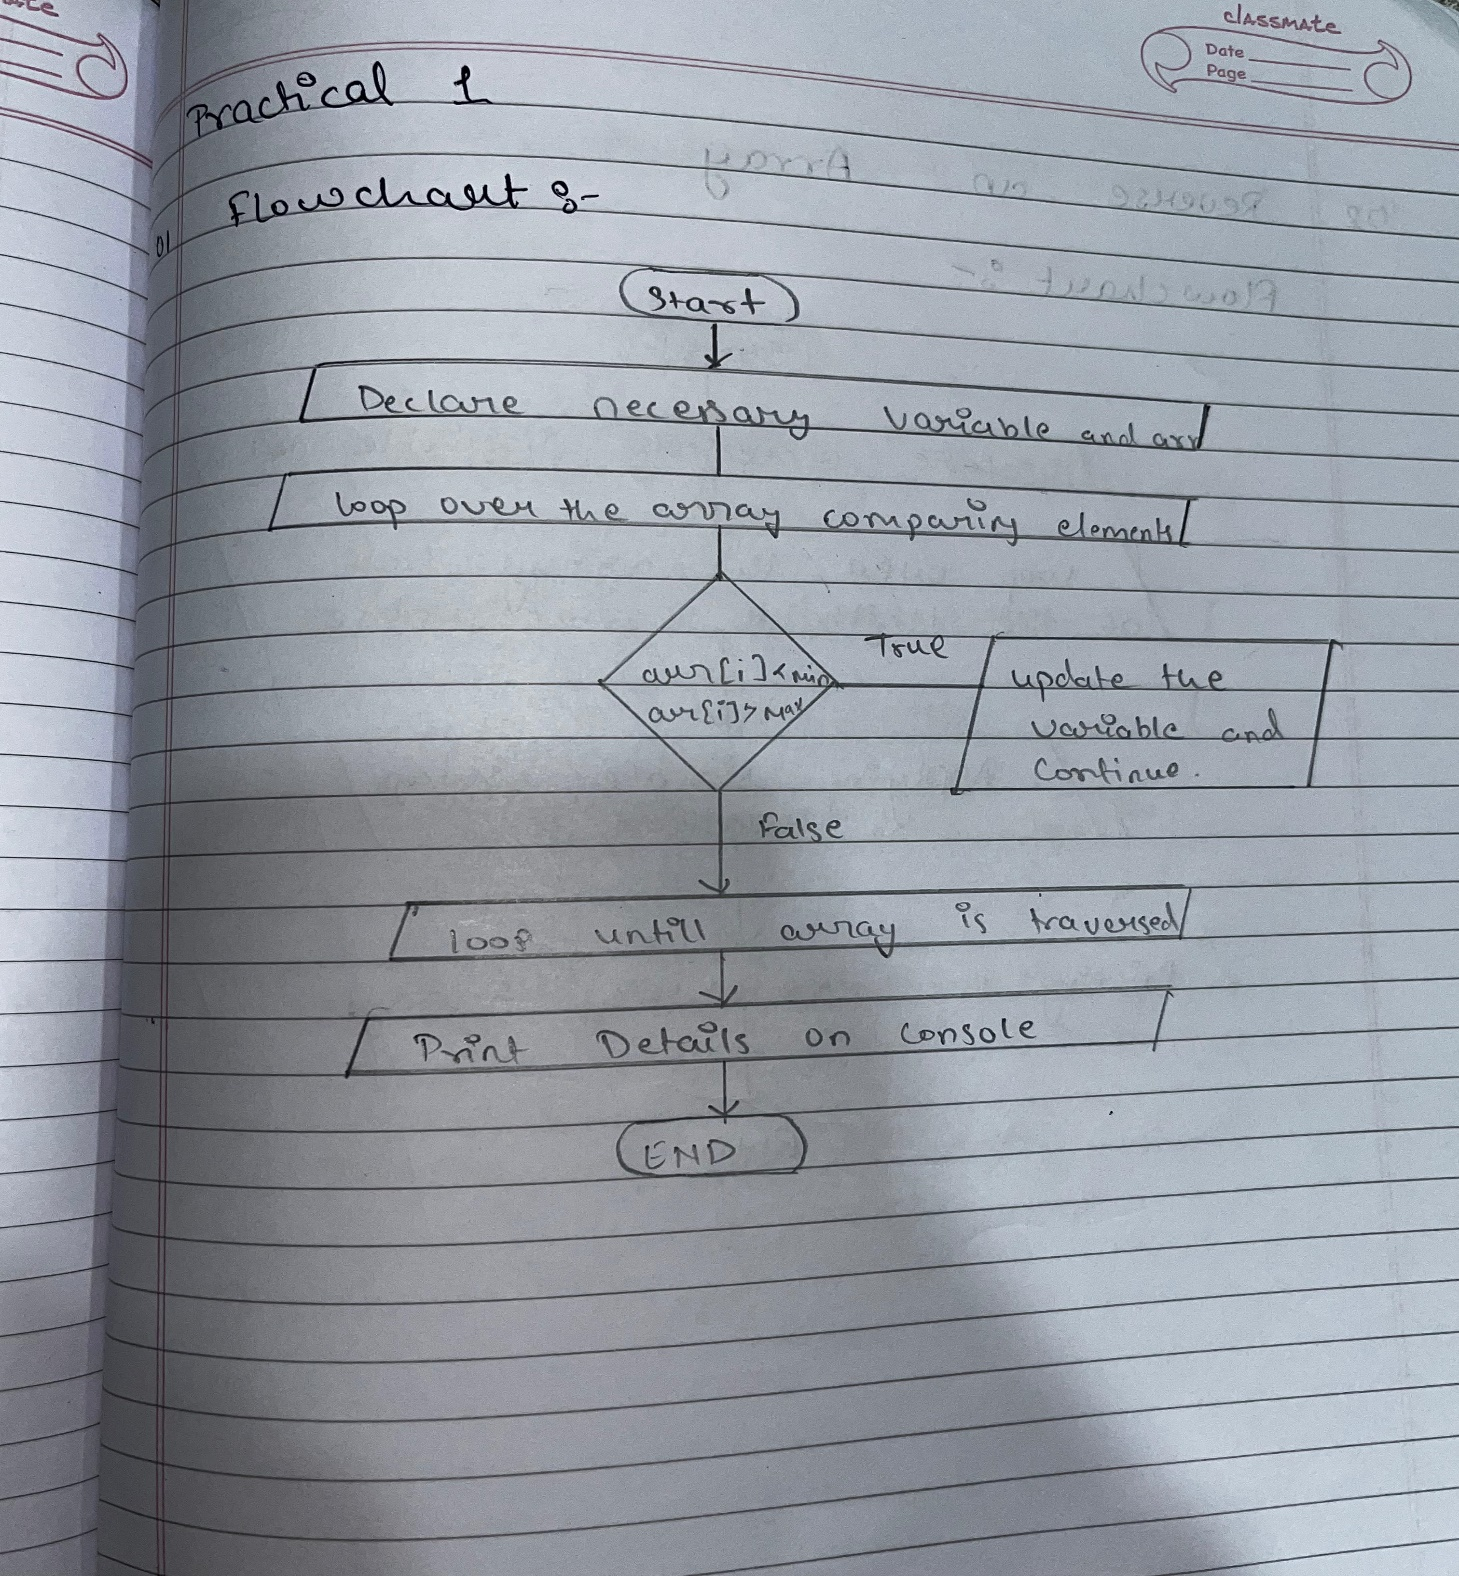 classmate
Date
Page
Practical 1
01 Flowchart :-
Start
Declare necessary variable and arr
loop over the array comparing elements
arr[i]<min
arr[i]>Max
True
update the
variable and
Continue.
False
loop untill array is traversed
Print Details on console
END